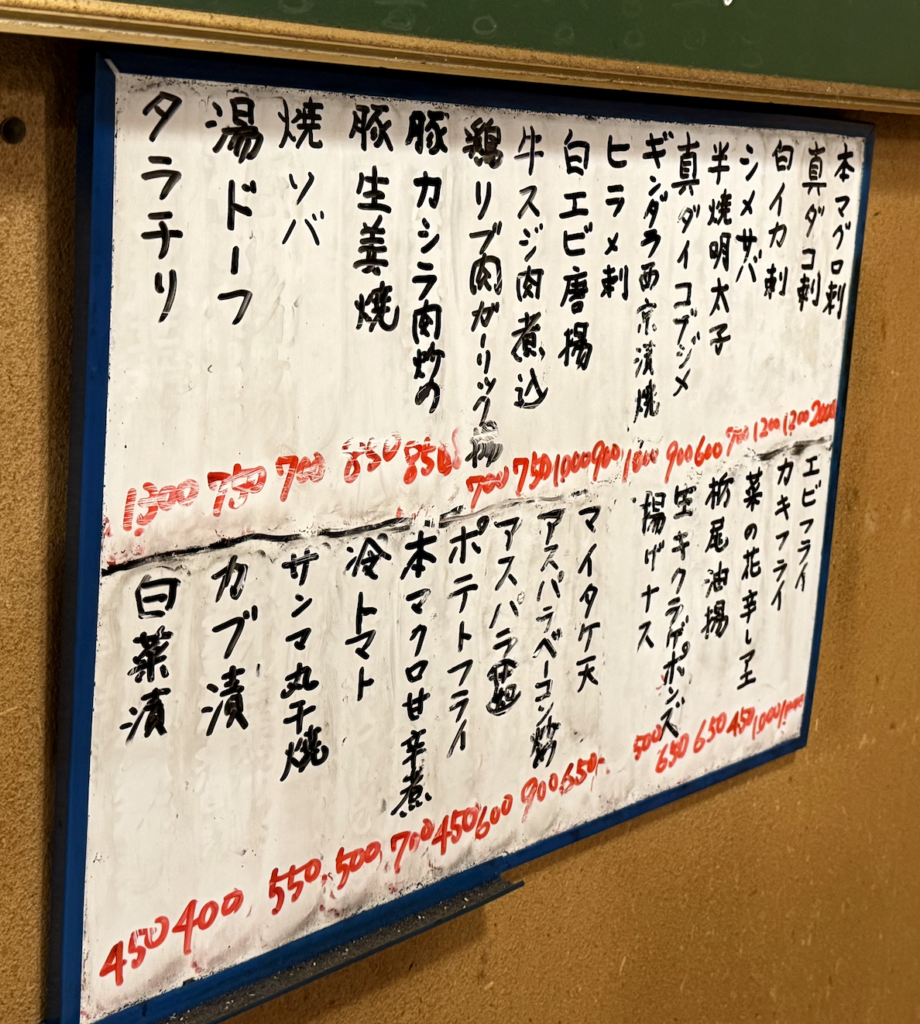 本マグロ刺 2000
真ダコ刺 1200
白イカ刺 1200
シメサバ 700
半焼明太子 600
真ダイコブジメ 900
ギンダラ西京漬焼
ヒラメ刺 900
白エビ唐揚 1000
牛スジ肉煮込 750
鶏リブ肉ガーリック揚 700
豚カシラ肉炒め 850
豚生姜焼 850
焼ソバ 700
湯ドーフ 750
タラチリ 1300
エビフライ 1000
カキフライ 1000
菜の花辛し 450
栃尾油揚 650
生キクラゲポンズ 650
揚げナス 500
マイタケ天 650
アスパラベーコン炒 900
アスパラ 600
ポテトフライ 450
本マクロ甘辛煮 700
冷トマト 500
サンマ丸干焼 550
カブ漬 400
白菜漬 450